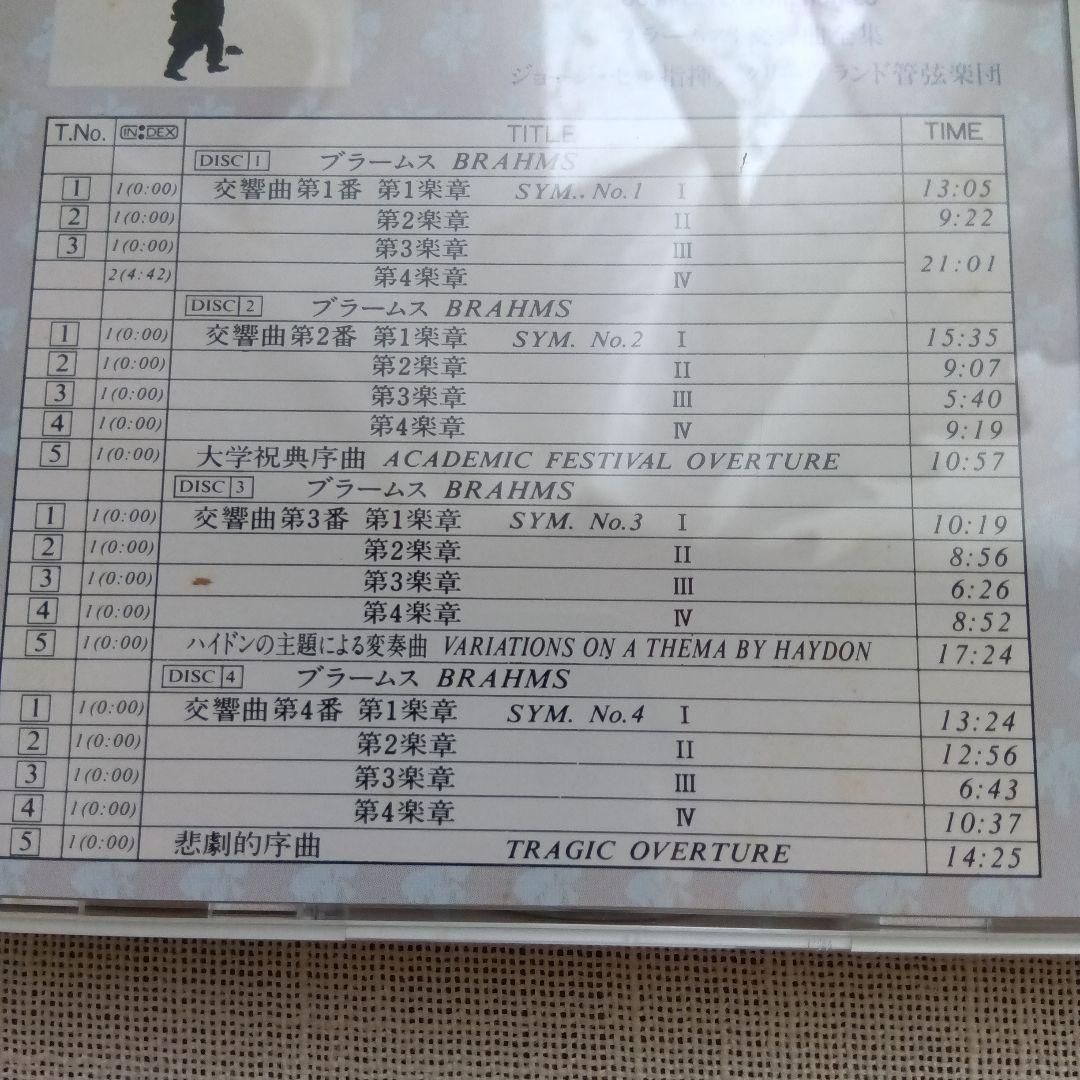 全集
ジョージ・セル指揮 ランド管弦楽団
T.No. INDEX TITLE TIME
DISC 1 ブラームス BRAHMS
1 1(0:00) 交響曲第1番 第1楽章 SYM. No.1 I 13:05
2 1(0:00) 第2楽章 II 9:22
3 1(0:00) 第3楽章 III 21:01
2(4:42) 第4楽章 IV
DISC 2 ブラームス BRAHMS
1 1(0:00) 交響曲第2番 第1楽章 SYM. No.2 I 15:35
2 1(0:00) 第2楽章 II 9:07
3 1(0:00) 第3楽章 III 5:40
4 1(0:00) 第4楽章 IV 9:19
5 1(0:00) 大学祝典序曲 ACADEMIC FESTIVAL OVERTURE 10:57
DISC 3 ブラームス BRAHMS
1 1(0:00) 交響曲第3番 第1楽章 SYM. No.3 I 10:19
2 1(0:00) 第2楽章 II 8:56
3 1(0:00) 第3楽章 III 6:26
4 1(0:00) 第4楽章 IV 8:52
5 1(0:00) ハイドンの主題による変奏曲 VARIATIONS ON A THEMA BY HAYDON 17:24
DISC 4 ブラームス BRAHMS
1 1(0:00) 交響曲第4番 第1楽章 SYM. No.4 I 13:24
2 1(0:00) 第2楽章 II 12:56
3 1(0:00) 第3楽章 III 6:43
4 1(0:00) 第4楽章 IV 10:37
5 1(0:00) 悲劇的序曲 TRAGIC OVERTURE 14:25